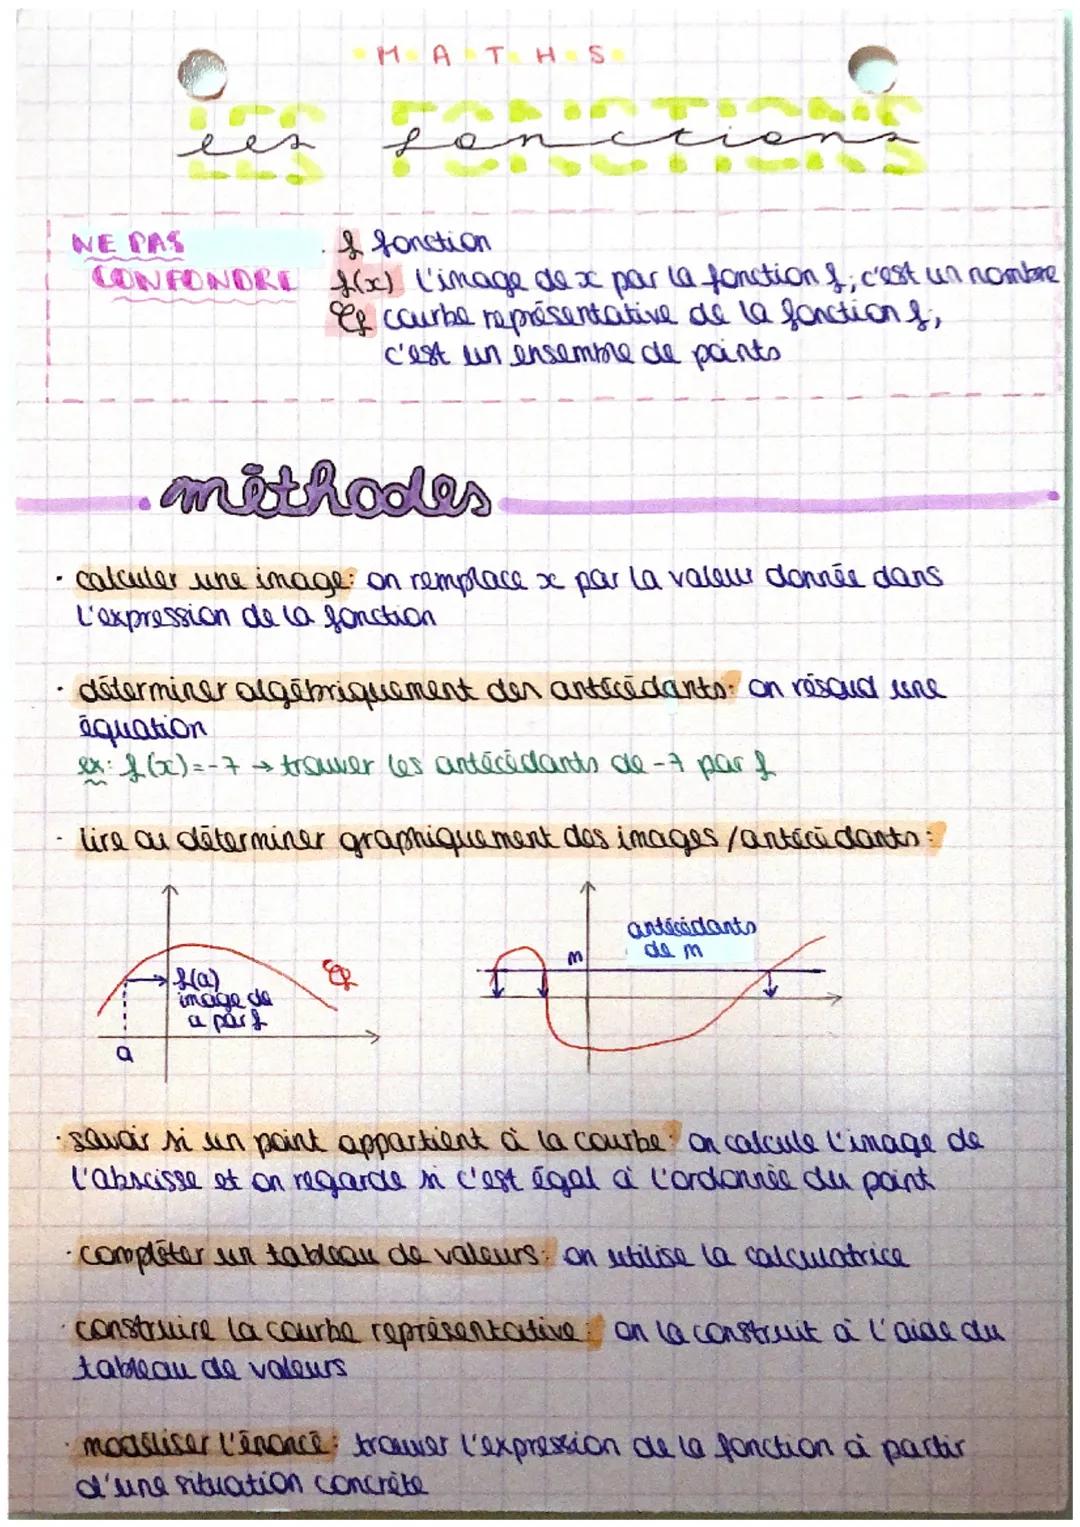 M.A.T.H.S.
LES FONCTIONS
les fonctions
NE PAS
CONFONDRE
f fonction
f(x) l'image de x par la fonction f; c'est un nombre
Cf courbe représentative de la fonction f,
c'est un ensemble de points
méthodes
· calculer une image: on remplace x par la valeur donnée dans
l'expression de la fonction
· déterminer algébriquement des antécédants: on résoud une
équation
ex: f(x)=-7 → trouver les antécédants de -7 par f
· lire ou déterminer graphiquement des images/antécédants:
f(a)
image de
a par f
Cf
a
m
antécédants
de m
· savoir si un point appartient à la courbe: on calcule l'image de
l'abscisse et on regarde si c'est égal à l'ordonnée du point
· compléter un tableau de valeurs: on utilise la calculatrice
· construire la courbe représentative: on la construit à l'aide du
tableau de valeurs
· modéliser l'énoncé: trouver l'expression de la fonction à partir
d'une situation concrète